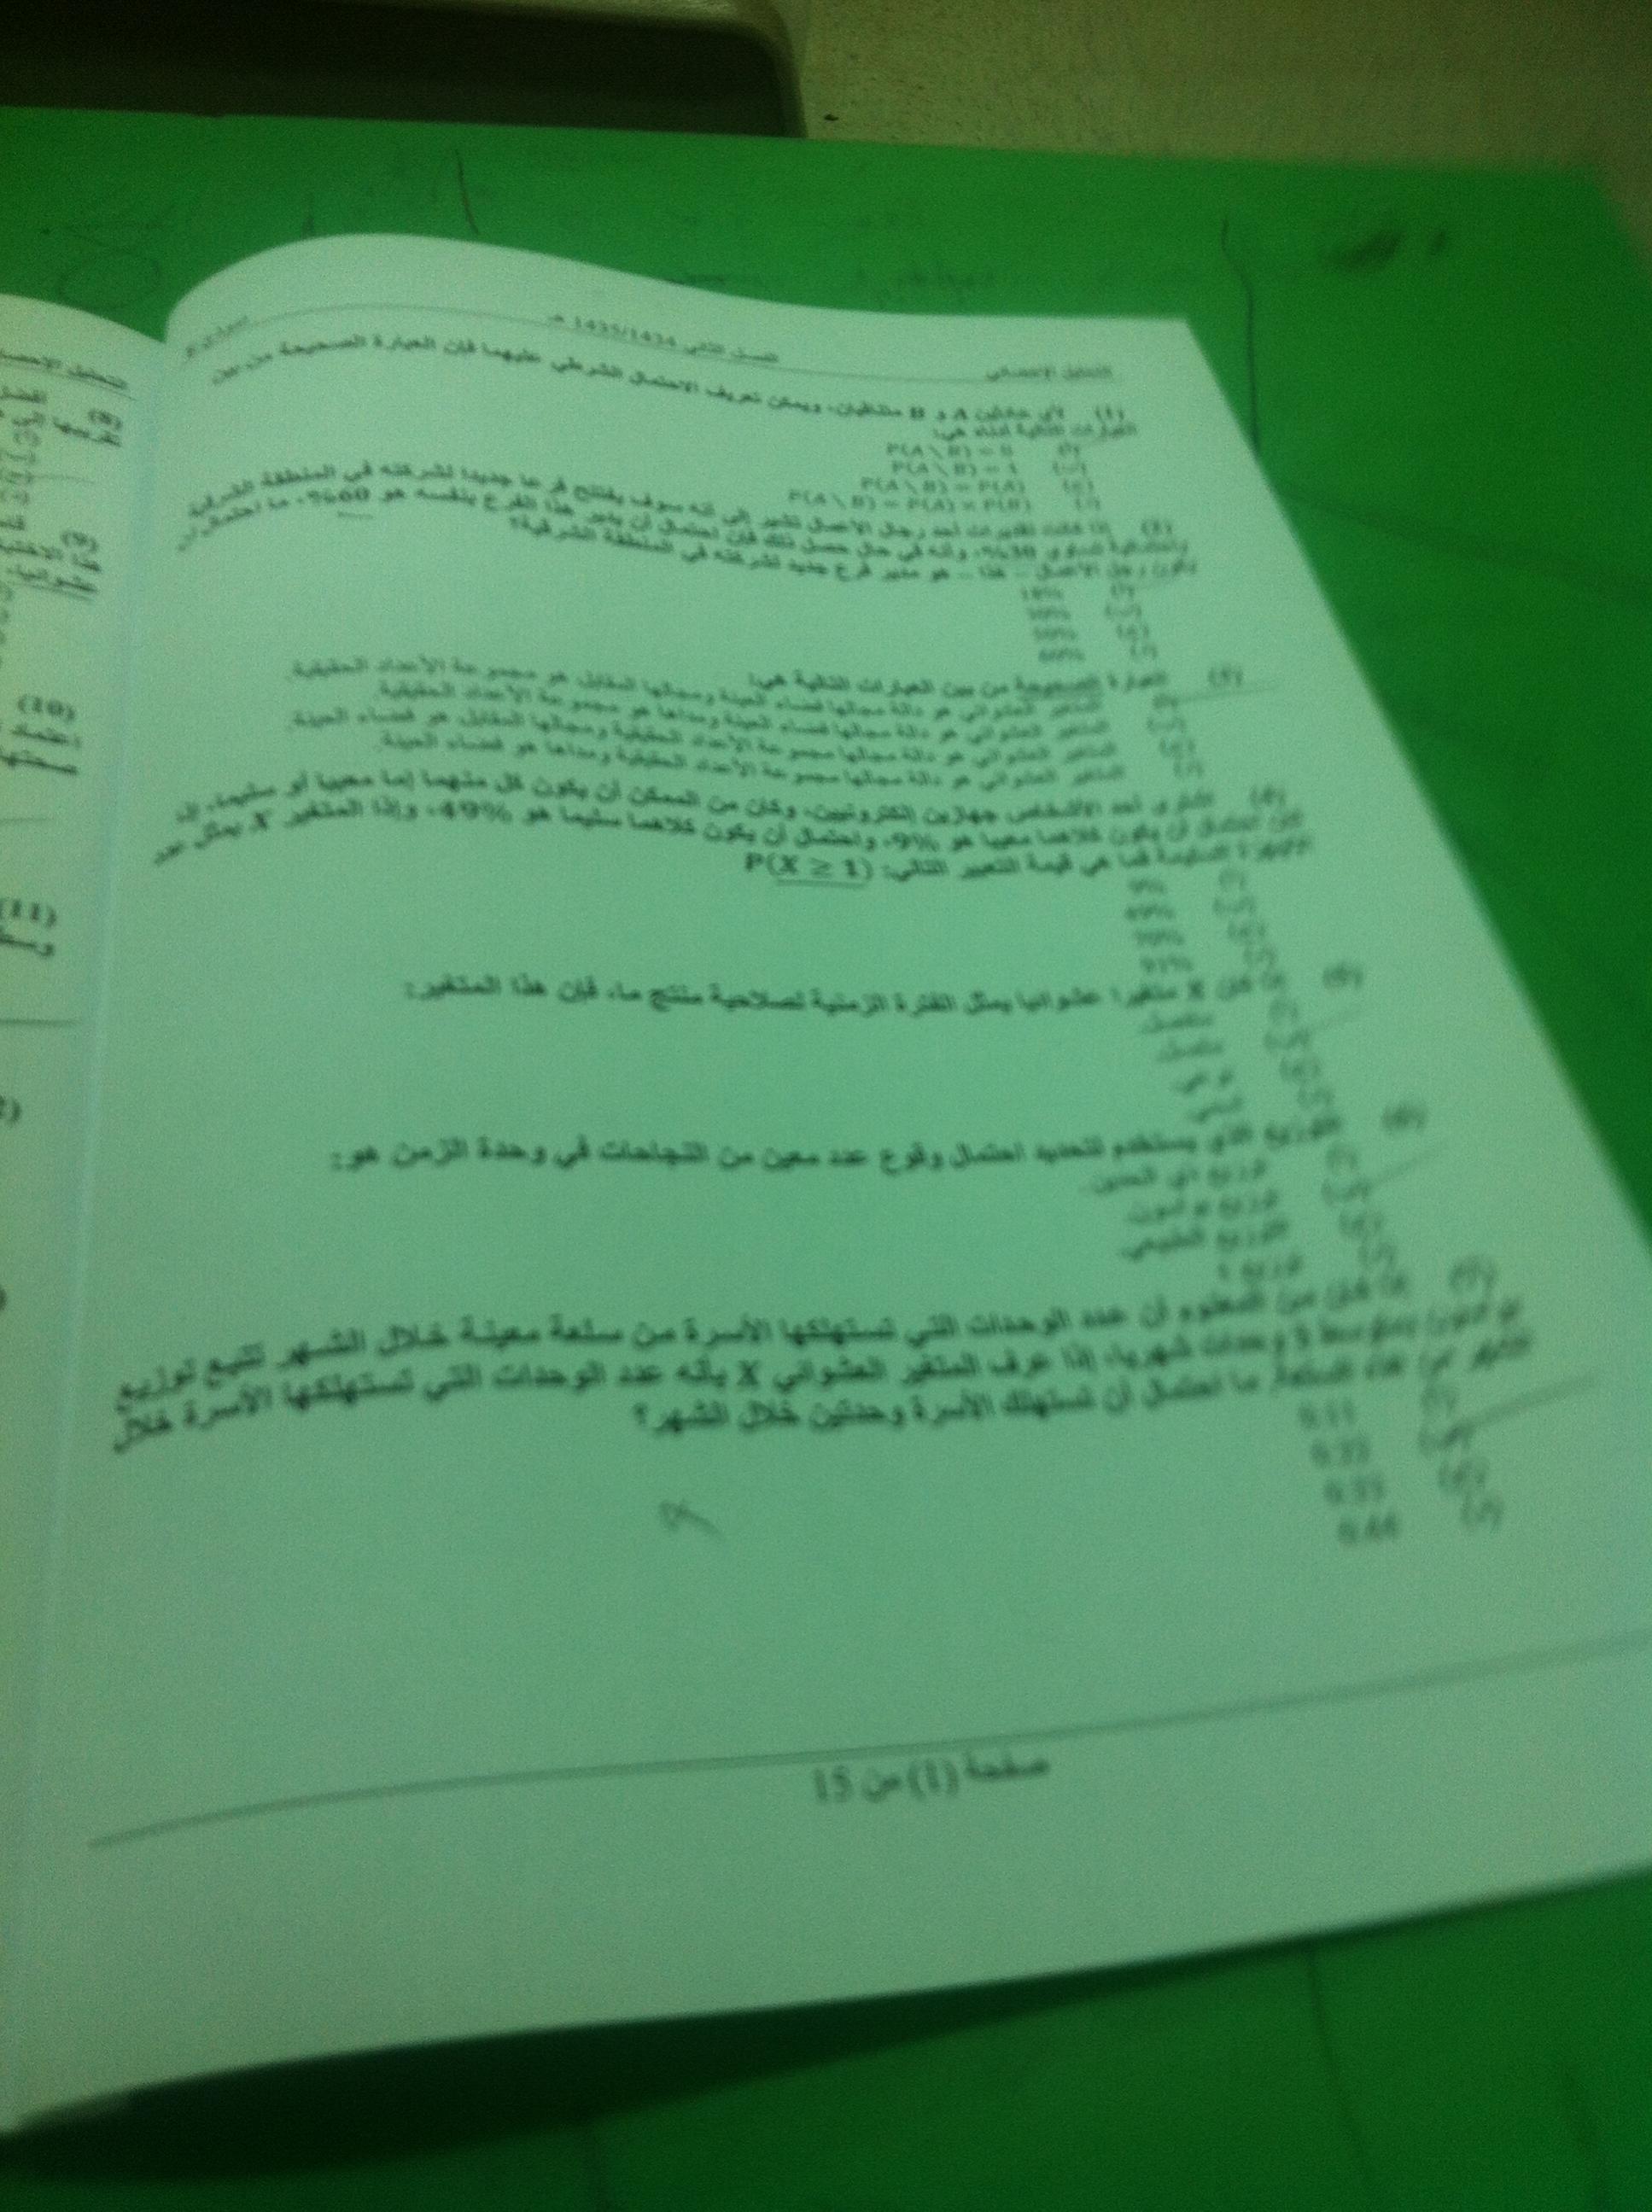 التحليل الإحصائي
الفصل الثاني 1435/1434 هـ
(1) لأي حادثين A و B متنافيان، ويمكن تعريف الاحتمال الشرطي عليهما فإن العبارة الصحيحة من بين
العبارات التالية أدناه هي:
(أ) P(A \ B) = 0
(ب) P(A \ B) = 1
(ج) P(A \ B) = P(A)
(د) P(A \ B) = P(A) × P(B)
(2) إذا كانت تقديرات أحد رجال الأعمال تشير إلى أنه سوف يفتتح فرعا جديدا لشركته في المنطقة الشرقية
باحتمالية تساوي 30%، وأنه في حال حصل ذلك فإن احتمال أن يدير هذا الفرع بنفسه هو 60%، ما احتمال أن
يكون رجل الأعمال – هذا – هو مدير فرع جديد لشركته في المنطقة الشرقية؟
(أ) 18%
(ب) 30%
(ج) 50%
(د) 60%
(3) العبارة الصحيحة من بين العبارات التالية هي:
(أ) المتغير العشوائي هو دالة مجالها فضاء العينة ومجالها المقابل هو مجموعة الأعداد الحقيقية.
(ب) المتغير العشوائي هو دالة مجالها فضاء العينة ومداها هو مجموعة الأعداد الحقيقية.
(ج) المتغير العشوائي هو دالة مجالها مجموعة الأعداد الحقيقية ومجالها المقابل هو فضاء العينة.
(د) المتغير العشوائي هو دالة مجالها مجموعة الأعداد الحقيقية ومداها هو فضاء العينة.
(4) اشترى أحد الأشخاص جهازين إلكترونيين، وكان من الممكن أن يكون كل منهما إما معيبا أو سليما، إذا
كان احتمال أن يكون كلاهما معيبا هو 9%، واحتمال أن يكون كلاهما سليما هو 49%، وإذا المتغير X يمثل عدد
الأجهزة السليمة فما هي قيمة التعبير التالي: P(X ≥ 1)
(أ) 9%
(ب) 49%
(ج)
(د) 91%
(5) إذا كان X متغيرا عشوائيا يمثل الفترة الزمنية لصلاحية منتج ما، فإن هذا المتغير:
(أ) منفصل
(ب) متصل
(ج) نوعي
(د)
(6) التوزيع الذي يستخدم لتحديد احتمال وقوع عدد معين من النجاحات في وحدة الزمن هو:
(أ) توزيع ذي الحدين.
(ب) توزيع بواسون.
(ج) التوزيع الطبيعي.
(د) توزيع t
(7) إذا كان من المعلوم أن عدد الوحدات التي تستهلكها الأسرة من سلعة معينة خلال الشهر تتبع توزيع
بواسون بمتوسط 3 وحدات شهريا، إذا عرف المتغير العشوائي X بأنه عدد الوحدات التي تستهلكها الأسرة خلال
الشهر من هذه السلعة. ما احتمال أن تستهلك الأسرة وحدتين خلال الشهر؟
(أ) 0.11
(ب) 0.22
(ج) 0.33
(د) 0.44
صفحة (1) من 15
التحليل الإحصا
(8)
تقريبها إلى
(9)
هذا الاختبا
عشوائيا،
(10)
اعتماد
(11)